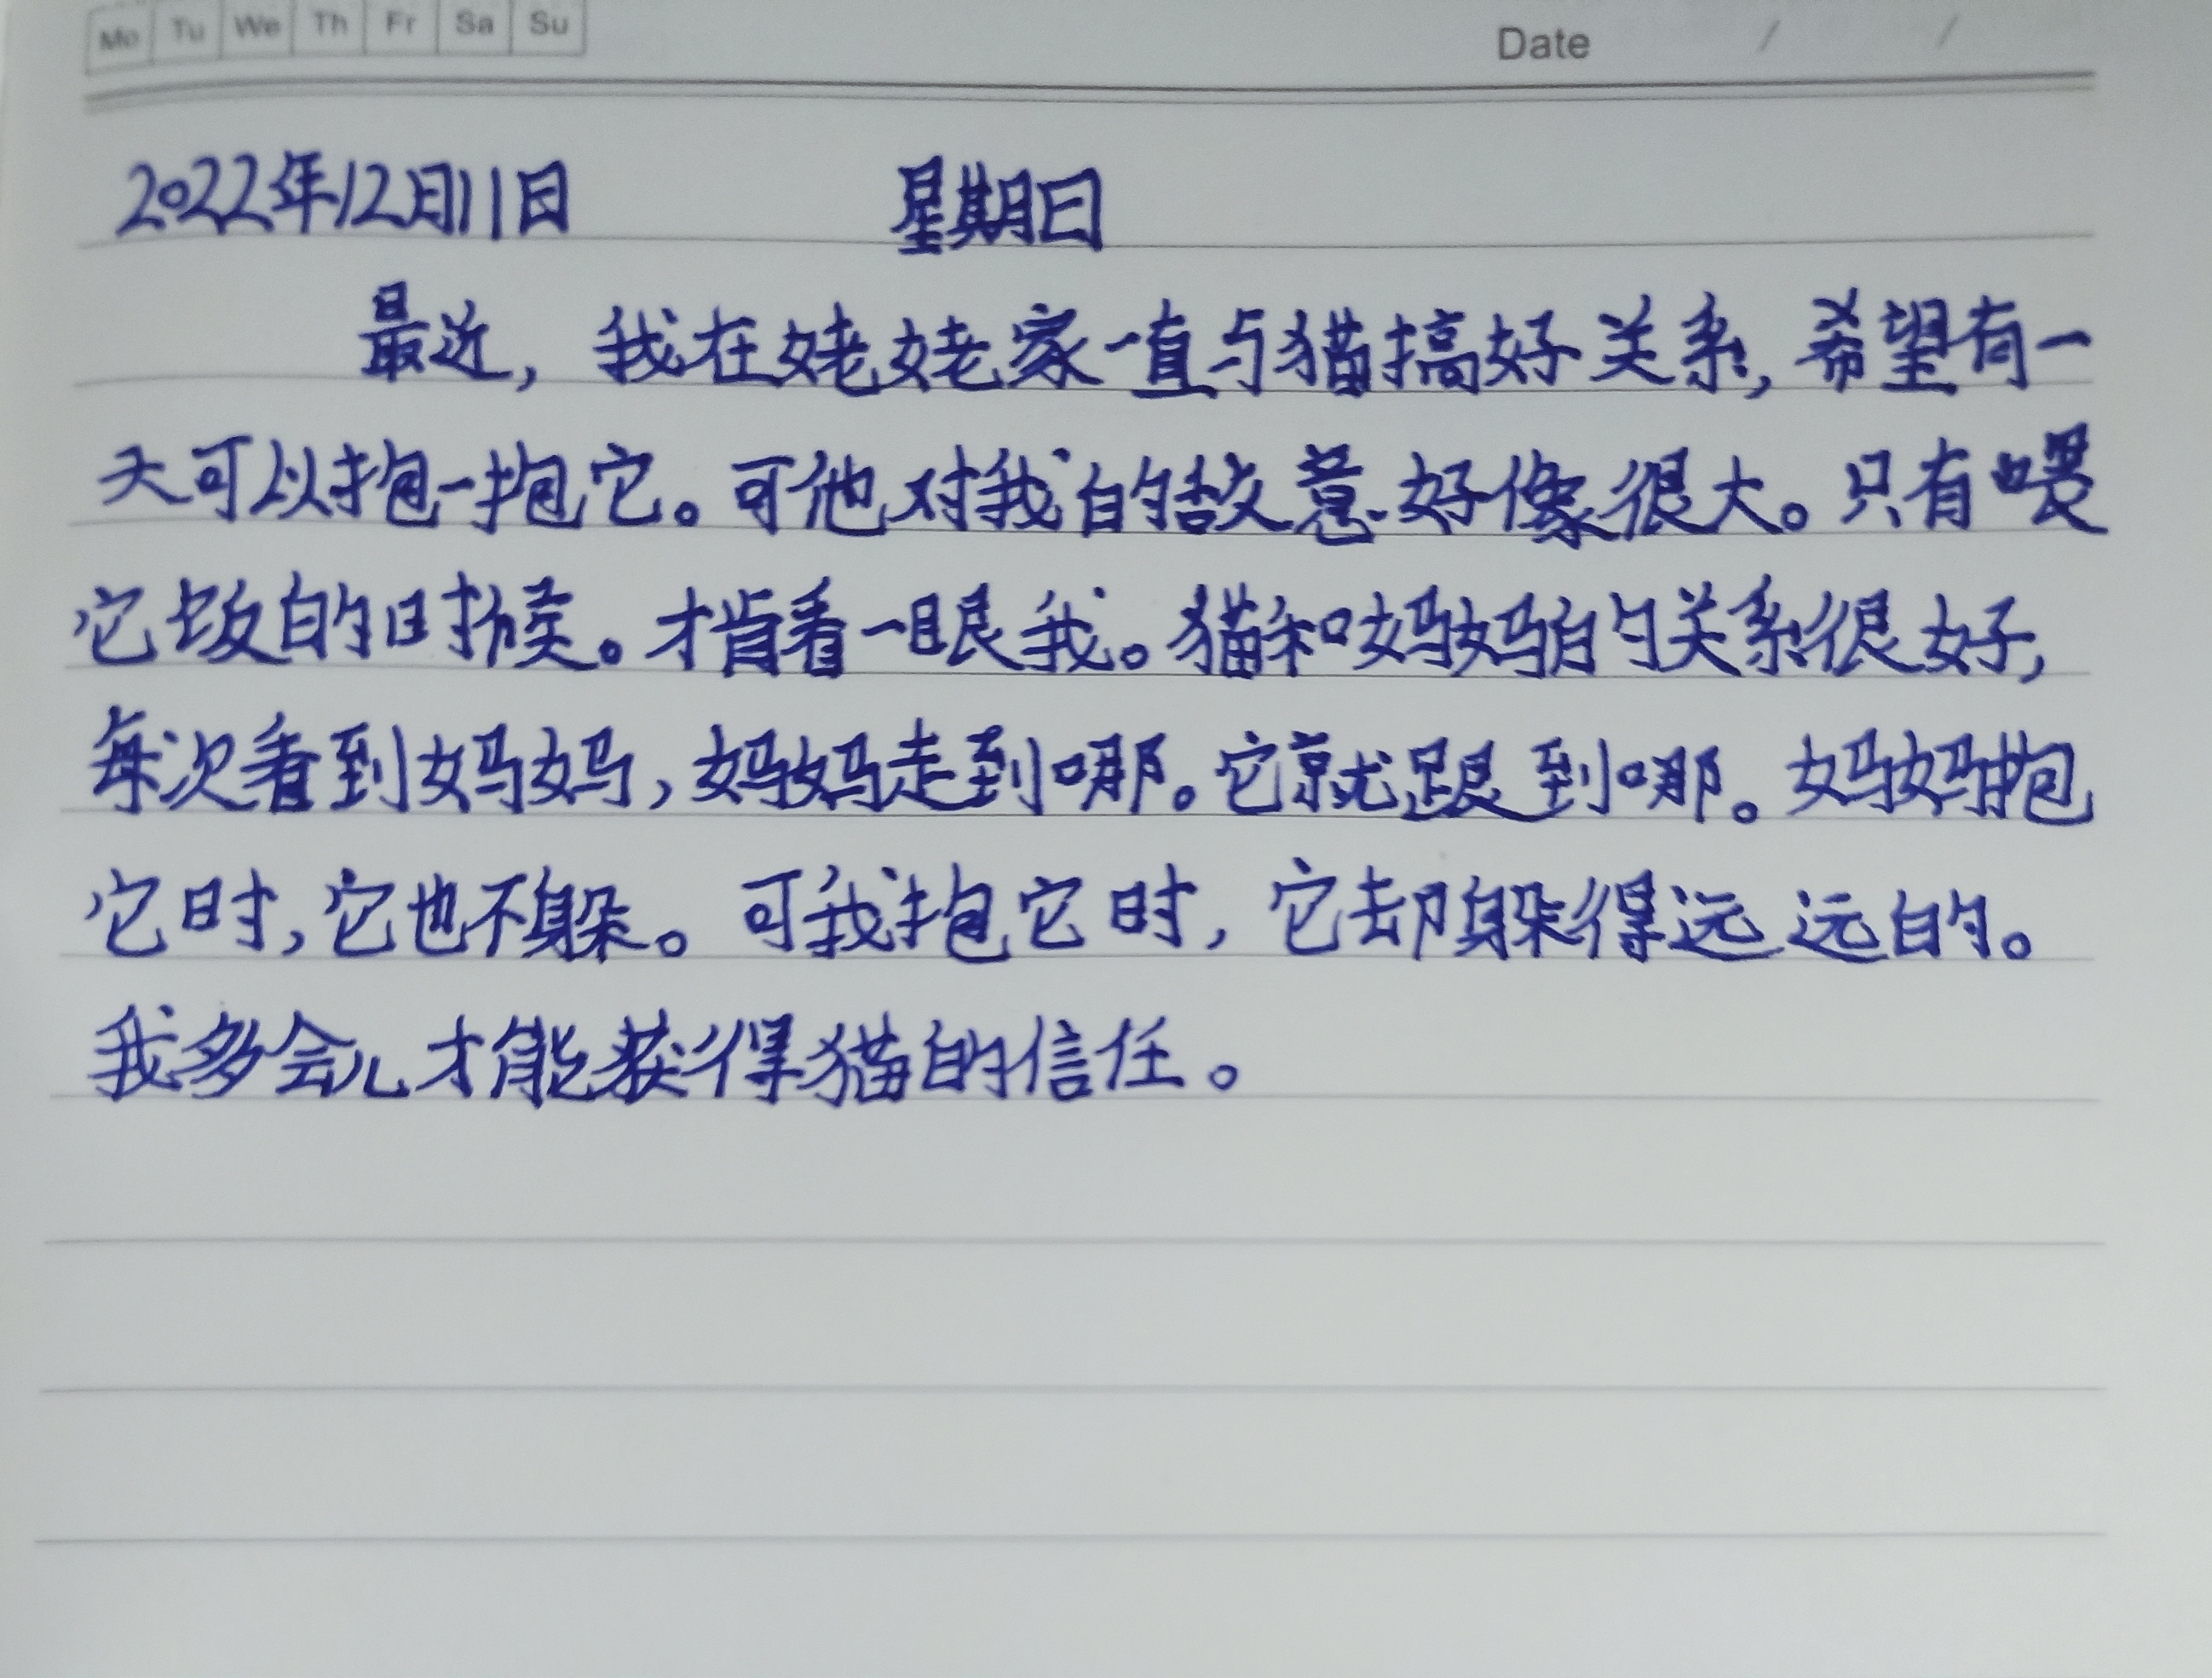 Mo Tu We Th Fr Sa Su Date / /
2022年12月11日 星期日
最近，我在姥姥家一直与猫搞好关系，希望有一
天可以抱一抱它。可他对我的敌意好像很大。只有喂
它饭的时候。才肯看一眼我。猫和妈妈的关系很好，
每次看到妈妈，妈妈走到哪。它就跟到哪。妈妈抱
它时，它也不躲。可我抱它时，它却躲得远远的。
我多会儿才能获得猫的信任。